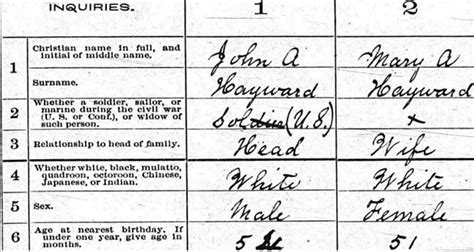 INQUIRIES. 1 2
1 Christian name in full, and initial of middle name. John A Mary A
Surname. Hayward Hayward
2 Whether a soldier, sailor, or marine during the civil war (U. S. or Conf.), or widow of such person. Soldier (U.S.) x
3 Relationship to head of family. Head Wife
4 Whether white, black, mulatto, quadroon, octoroon, Chinese, Japanese, or Indian. White White
5 Sex. Male Female
6 Age at nearest birthday. If under one year, give age in months. 51